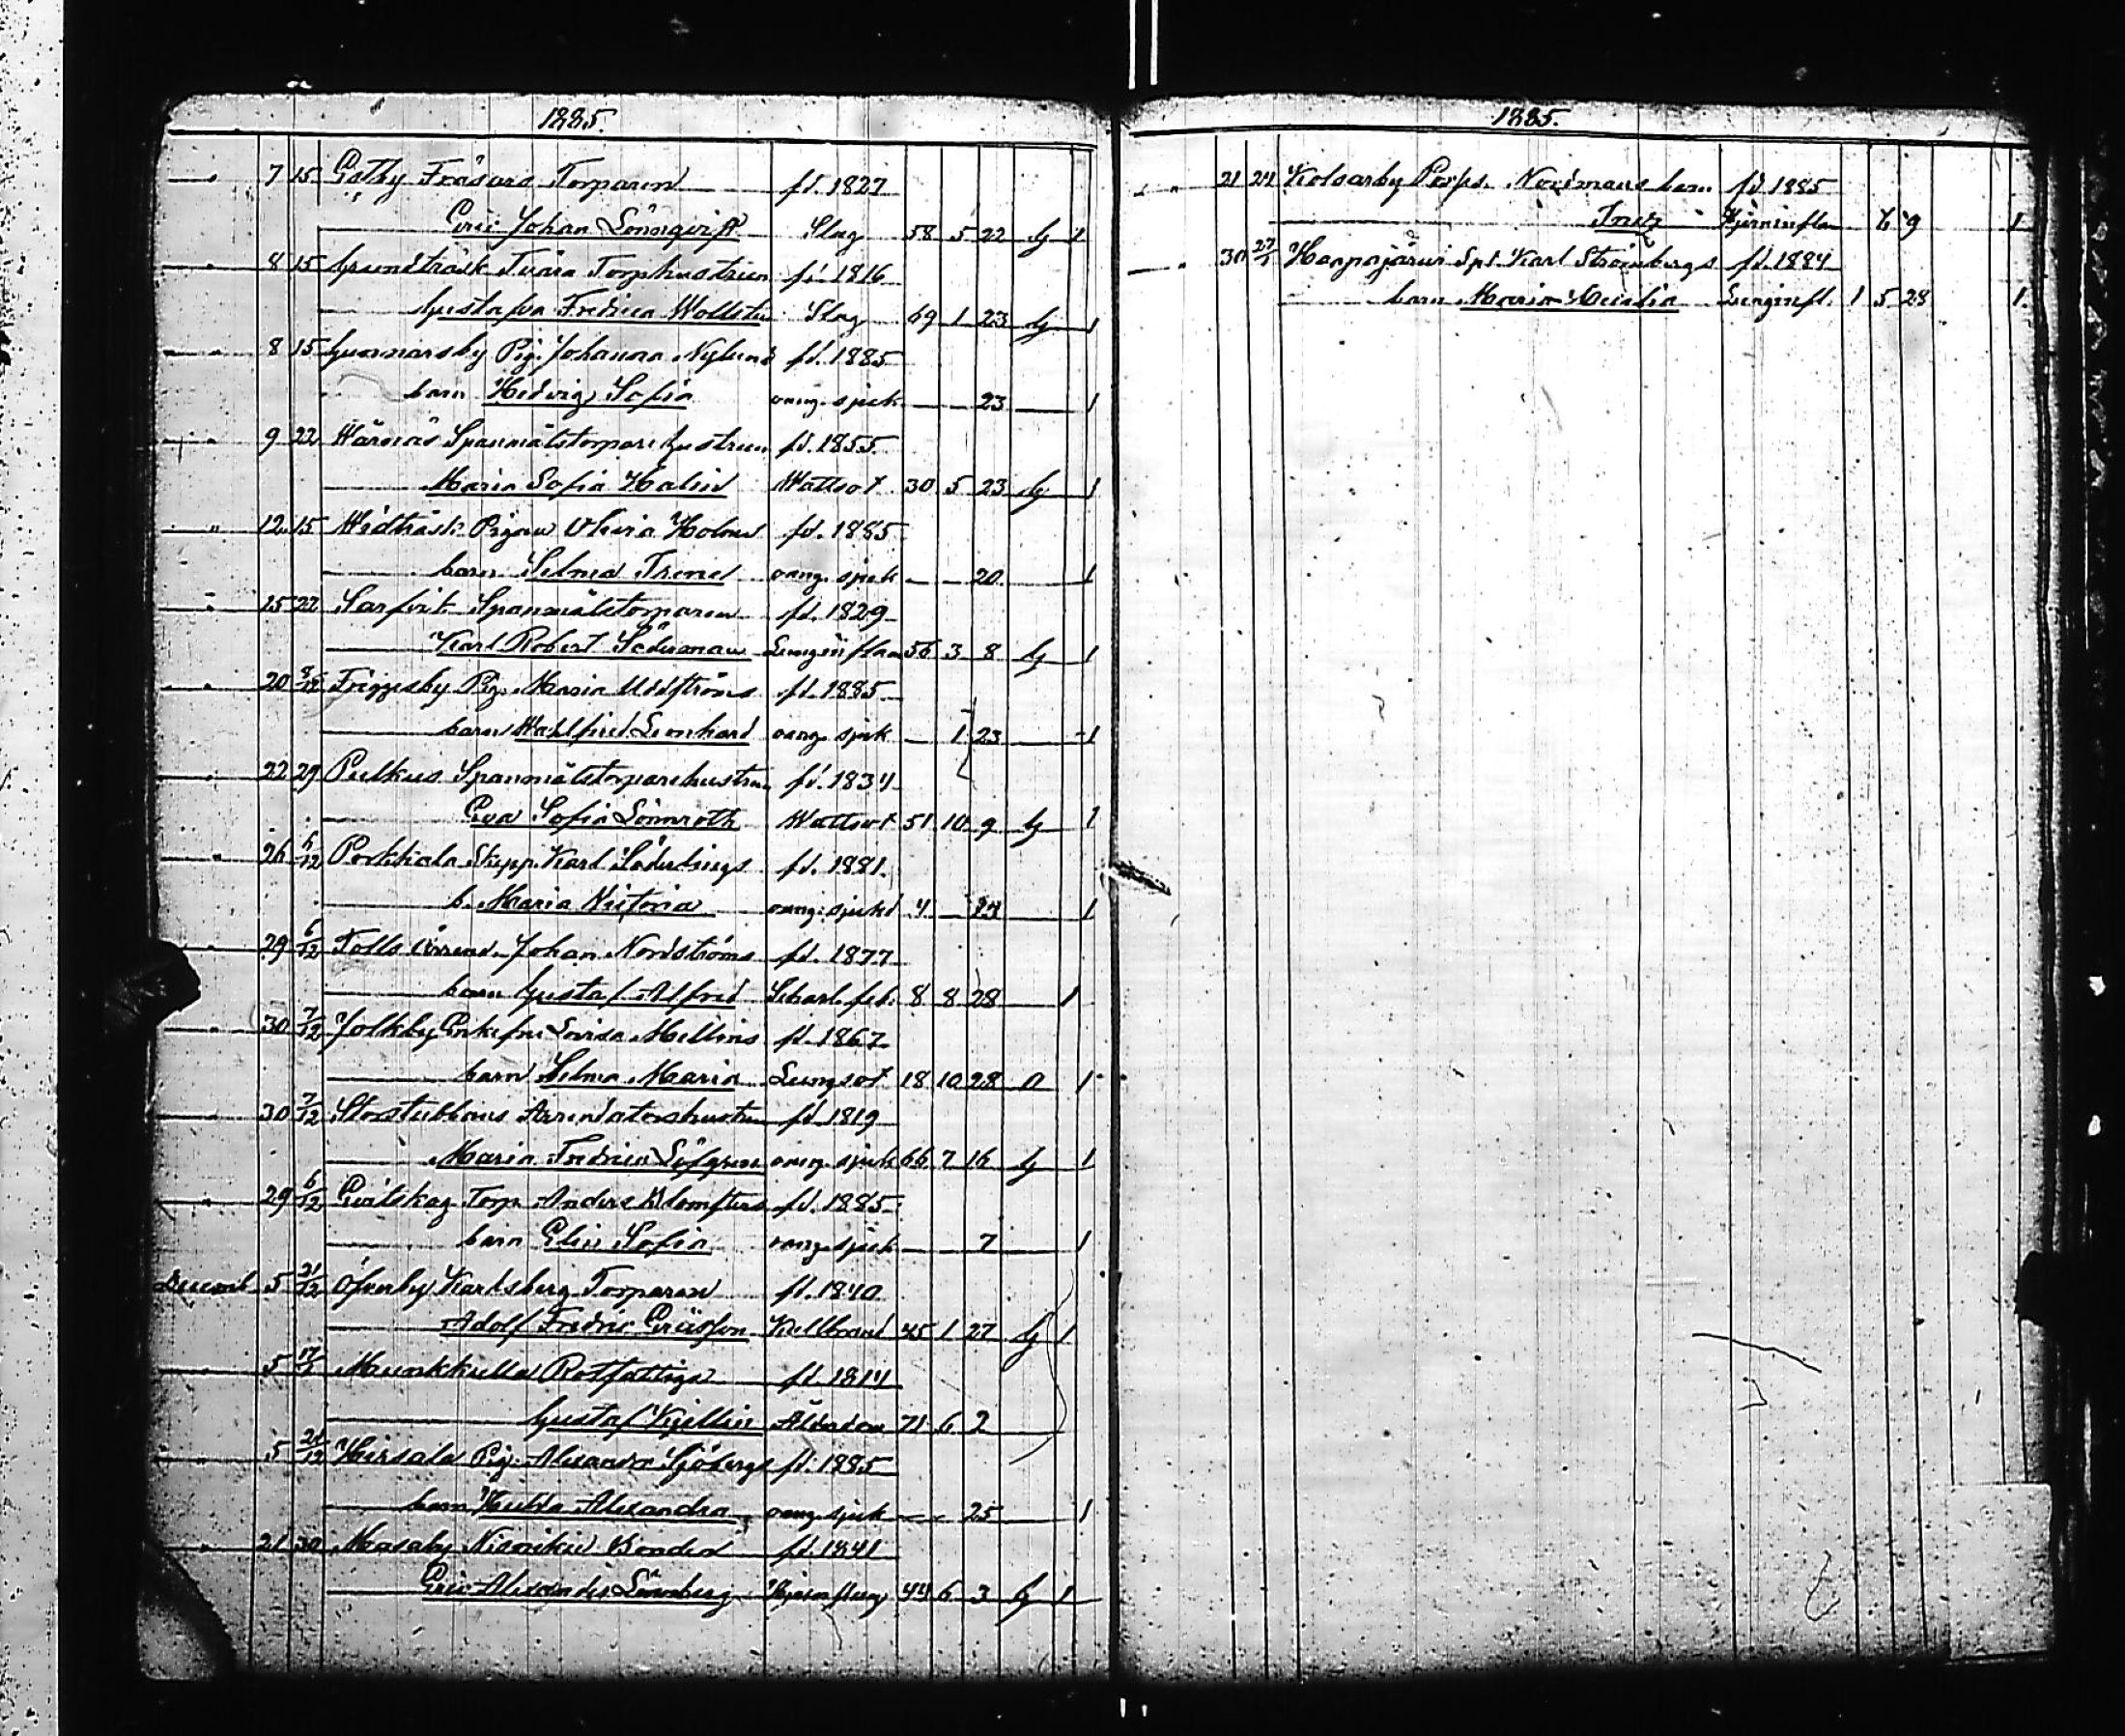 1885.
" 7 15 Estby Fräsars Torparen fd. 1827
Eric Johan Lönnqvist Slag 58 5 22 G 1
" 8 15 Grundträsk Tvära Torphustrun fd. 1816
Gustafva Fredrica Wollsten Slag 69 1 23 G 1
" 8 15 Gunnarsby Pig. Johanna Nylunds fd. 1885
barn Hedvig Sofia oang. sjuk 23 1
" 9 22 Wärnäs Spannmålstorparehustrun fd. 1855.
Maria Sofia Malin Wattsot 30 5 23 G 1
" 12 15 Widträsk Pigan Olivia Holms fd. 1885
barn Selma Irene oang. sjuk 20 1
" 15 22 Sarfvik Spannmålstorparen fd. 1829
Karl Robert Söderman Lunginflam 56 3 8 G 1
" 20 8/12 Friggesby Pig. Maria Uddströms fd. 1885
barn Walfrid Leonhard oang. sjuk 1 23 1
" 22 29 Pulkus Spannmålstorparehustrun fd. 1834
Eva Sofia Lönnroth Wattsot 51 10 9 G 1
" 26 6/12 Porkkala Skepp. Karl Söderlings fd. 1881.
b. Maria Victoria oang. sjukd 4 14 1
" 29 6/12 Tolls Arrend. Johan Nordströms fd. 1877
barn Gustaf Alfred Scharl. feb. 8 8 28 1
" 30 7/12 Jolkby Enkefru Lovisa Mellins fd. 1867
barn Selma Maria Lungsot 18 10 28 O 1
" 30 7/12 Storstubbans Arrendatorshustru fd. 1819
Maria Fredrica Löfgren oang. sjuk 66 7 16 G 1
" 29 6/12 Evitskog Torp. Anders Blomsters fd. 1885
barn Elin Sofia oang. sjuk 7 1
Decemb 5 21/12 Öfverby Karlsberg Torparen fd. 1840
Adolf Fredric Ericsson Kallbrand 45 1 27 G 1
" 5 Munkkulla Rotfattiga fd. 1814
Gustaf Kjellin Ålderdom 71 6 2
" 5 21/12 Hirsala Pig. Alexandra Sjöbergs fd. 1885
barn Hulda Alexandra oang. sjuk 25 1
" 21 30 Masaby Nissniku Bonden fd. 1841
Eric Alexander Lönnberg 44 6 3 G 1
1885.
" 21 24 Kolsarby Norrmans barn fd 1885
Inez Hjerninflam 6 9 1
" 30 27/1 Haapajärvi Spt. Karl Strömbergs fd. 1884
barn Maria Lunginfl. 1 5 28 1.